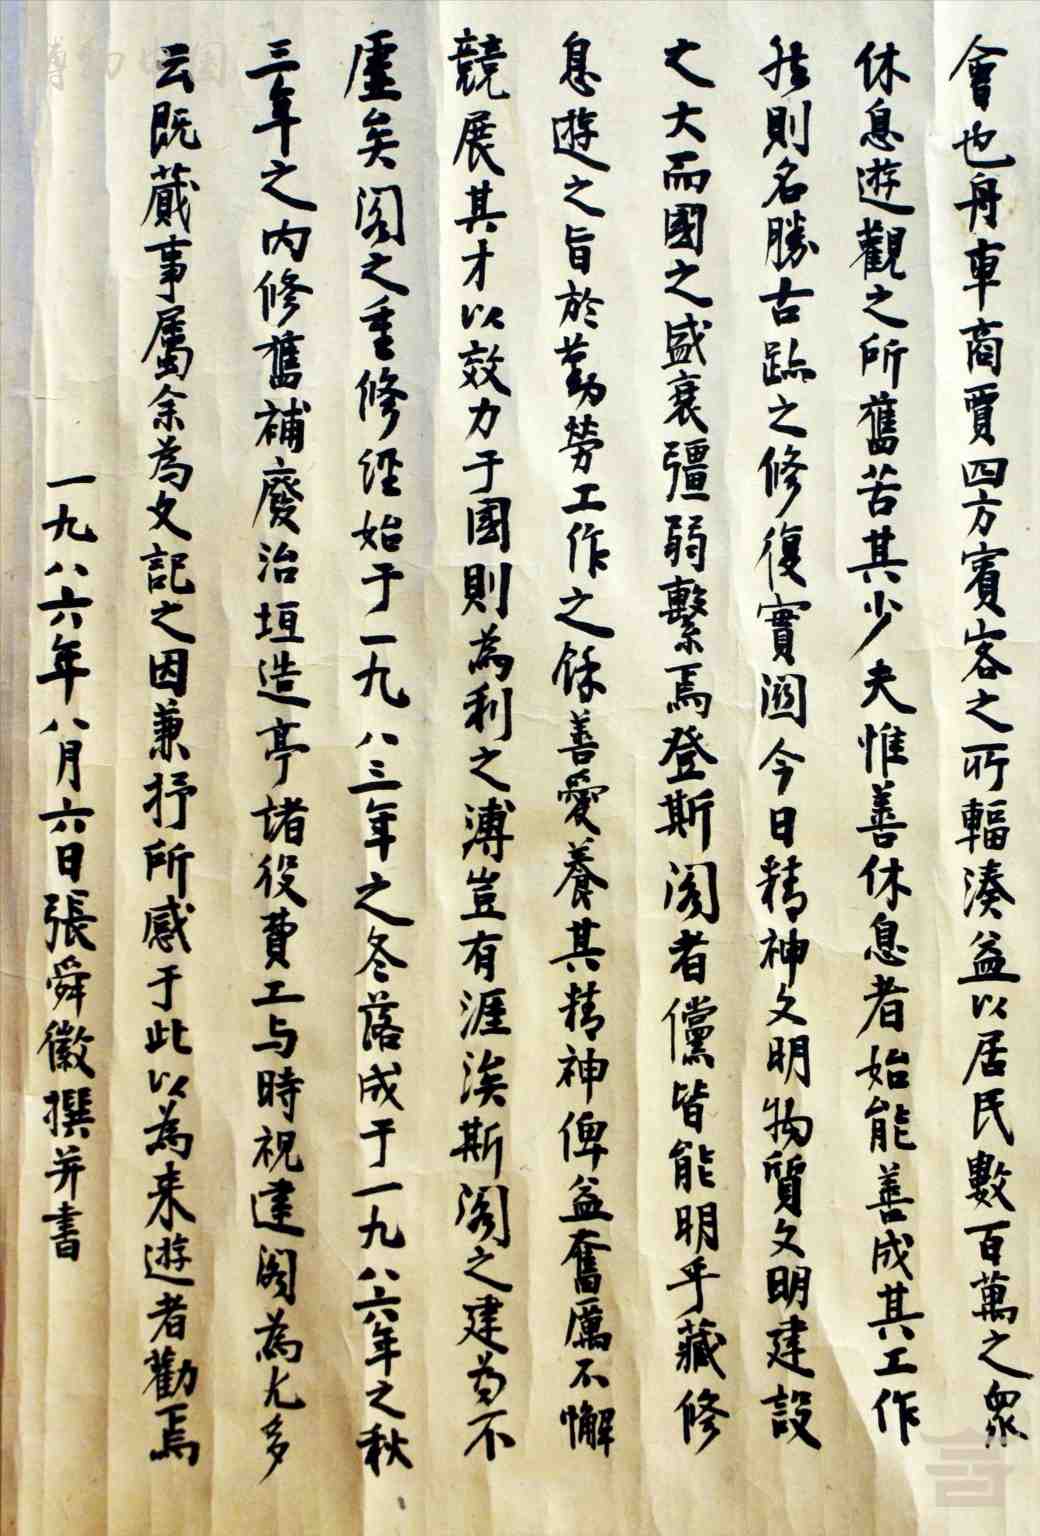 會也舟車商賈四方賓客之所輻湊益以居民數百萬之眾
休息遊觀之所舊苦其少夫惟善休息者始能善成其工作
然則名勝古跡之修復實關今日精神文明物質文明建設
之大而國之盛衰彊弱繫焉登斯閣者儻皆能明乎藏修
息遊之旨於勤勞工作之餘善愛養其精神俾益奮厲不懈
競展其才以效力于國則為利之溥豈有涯涘斯閣之建為不
虛矣閣之重修經始于一九八三年之冬落成于一九八六年之秋
三年之內修舊補廢治垣造亭諸役費工与時視建閣為尤多
云既蕆事屬余為文記之因兼抒所感于此以為来遊者勸焉
一九八六年八月六日張舜徽撰并書